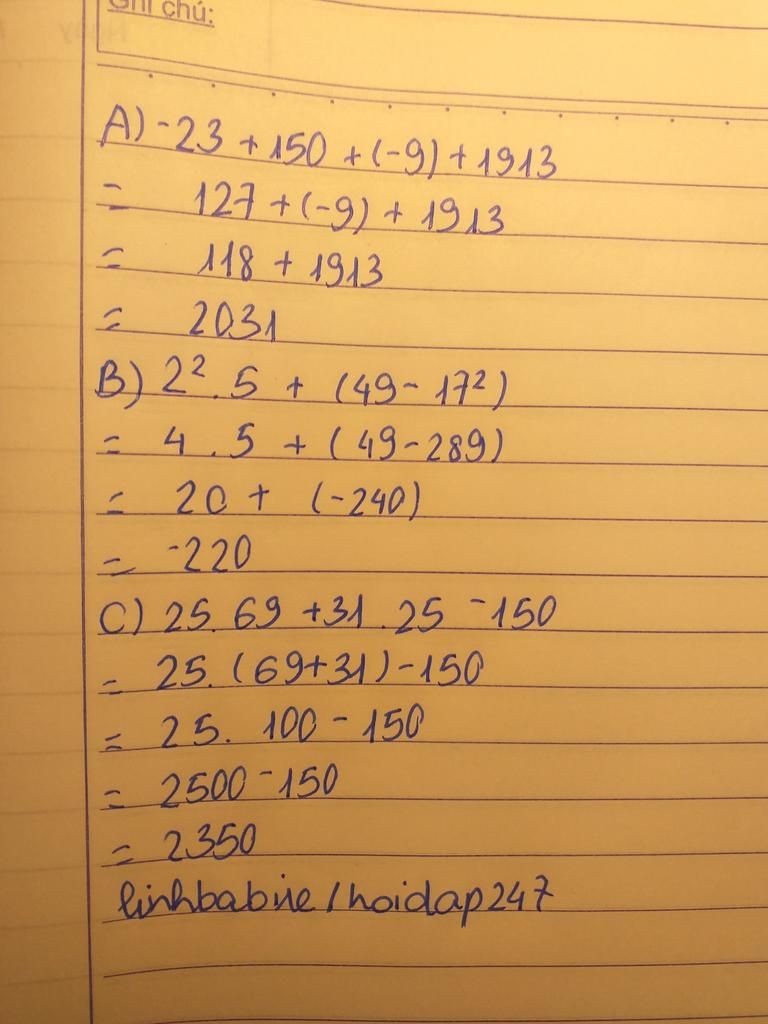 Ghi chú:
A) -23 + 150 + (-9) + 1913
= 127 + (-9) + 1913
= 118 + 1913
= 2031
B) 2² . 5 + (49 - 17²)
= 4 . 5 + (49 - 289)
= 20 + (-240)
= -220
C) 25. 69 + 31 . 25 - 150
= 25. (69+31) - 150
= 25. 100 - 150
= 2500 - 150
= 2350
linhbabiie / hoidap247